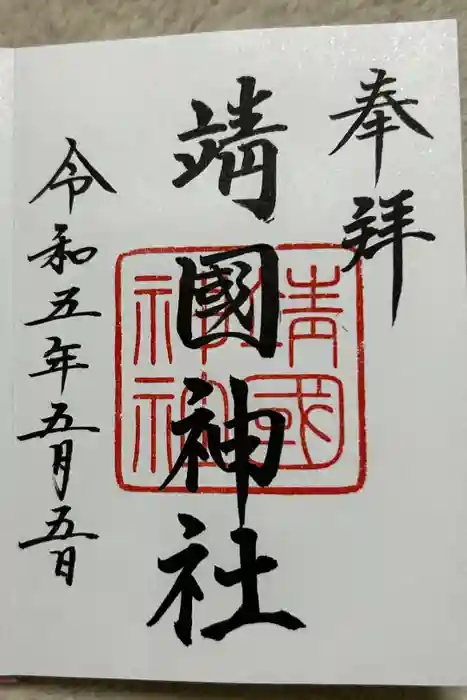 奉拝
靖國神社
靖國
神社
令和五年五月五日